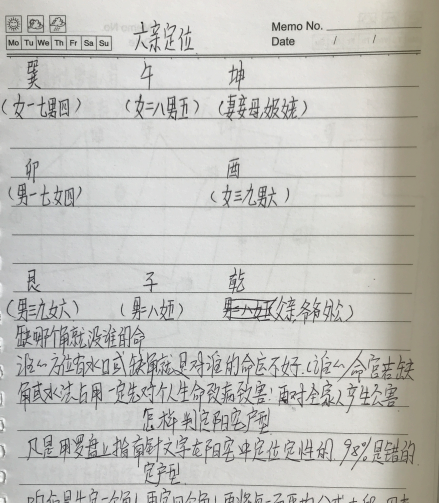 Memo No.
Mo Tu We Th Fr Sa Su
Date / /
六亲定位
巽 午 坤
(女一七男四) (女二八男五) (妻妾母,奶奶,姥姥)
卯 酉
(男一七女四) (女三九男六)
艮 子 乾
(男三九女六) (男二八女五) 父亲,爷爷,外公)
缺哪个角就没谁的命
谁的方位有水口或缺角就是对谁的命运不好.(谁的命宫若缺
角或水法占用一定先对个人生命致病致害;再对全家人产生公害
怎样判定阳宅户型
凡是用罗盘上指南针文字在阳宅中定位定性的,98%是错的
定户型